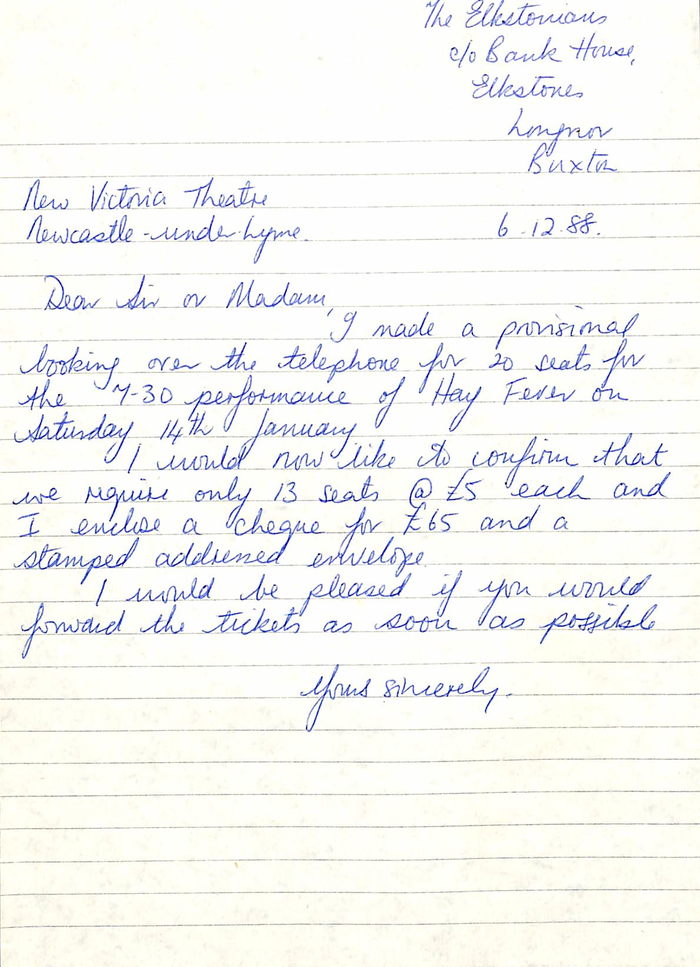 The Elkstonians
c/o Bank House,
Elkstones
Longnor
Buxton
New Victoria Theatre
Newcastle-under-Lyme.
6.12.88.
Dear Sir or Madam,
I made a provisional
booking over the telephone for 20 seats for
the 7-30 performance of Hay Fever on
Saturday 14th January
I would now like to confirm that
we require only 13 seats @ £5 each and
I enclose a cheque for £65 and a
stamped addressed envelope.
I would be pleased if you would
forward the tickets as soon as possible
Yours sincerely.